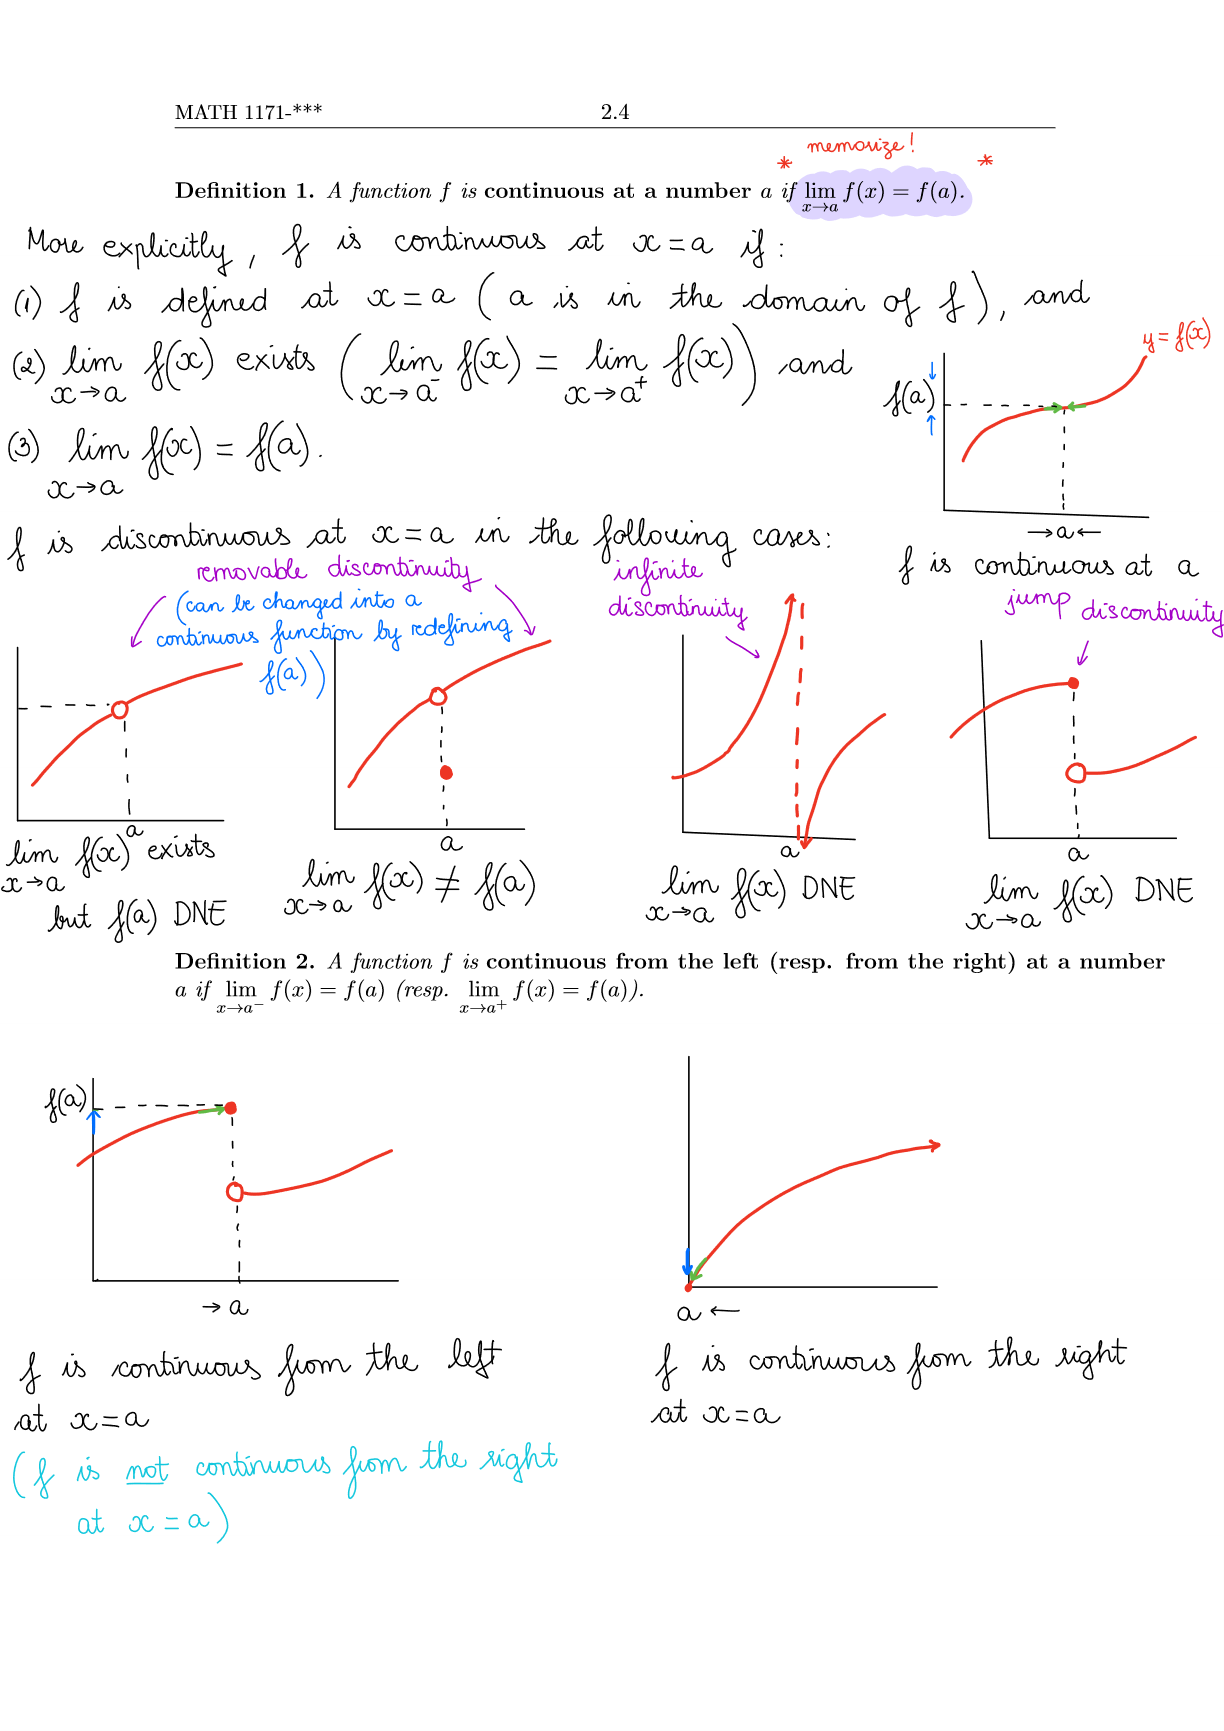 MATH 1171-*** 2.4
* memorize! *
Definition 1. A function f is continuous at a number a if lim x→a f(x) = f(a).
More explicitly, f is continuous at x = a if:
(1) f is defined at x = a (a is in the domain of f), and
(2) lim x→a f(x) exists (lim x→a⁻ f(x) = lim x→a⁺ f(x)) and
(3) lim x→a f(x) = f(a).
y = f(x)
f(a)
→a←
f is continuous at a
f is discontinuous at x = a in the following cases:
removable discontinuity
(can be changed into a
continuous function by redefining
f(a))
infinite
discontinuity
jump discontinuity
a
lim x→a f(x) exists
but f(a) DNE
a
lim x→a f(x) ≠ f(a)
a
lim x→a f(x) DNE
a
lim x→a f(x) DNE
Definition 2. A function f is continuous from the left (resp. from the right) at a number
a if lim x→a⁻ f(x) = f(a) (resp. lim x→a⁺ f(x) = f(a)).
f(a)
→ a
f is continuous from the left
at x = a
(f is not continuous from the right
at x = a)
a ←
f is continuous from the right
at x = a